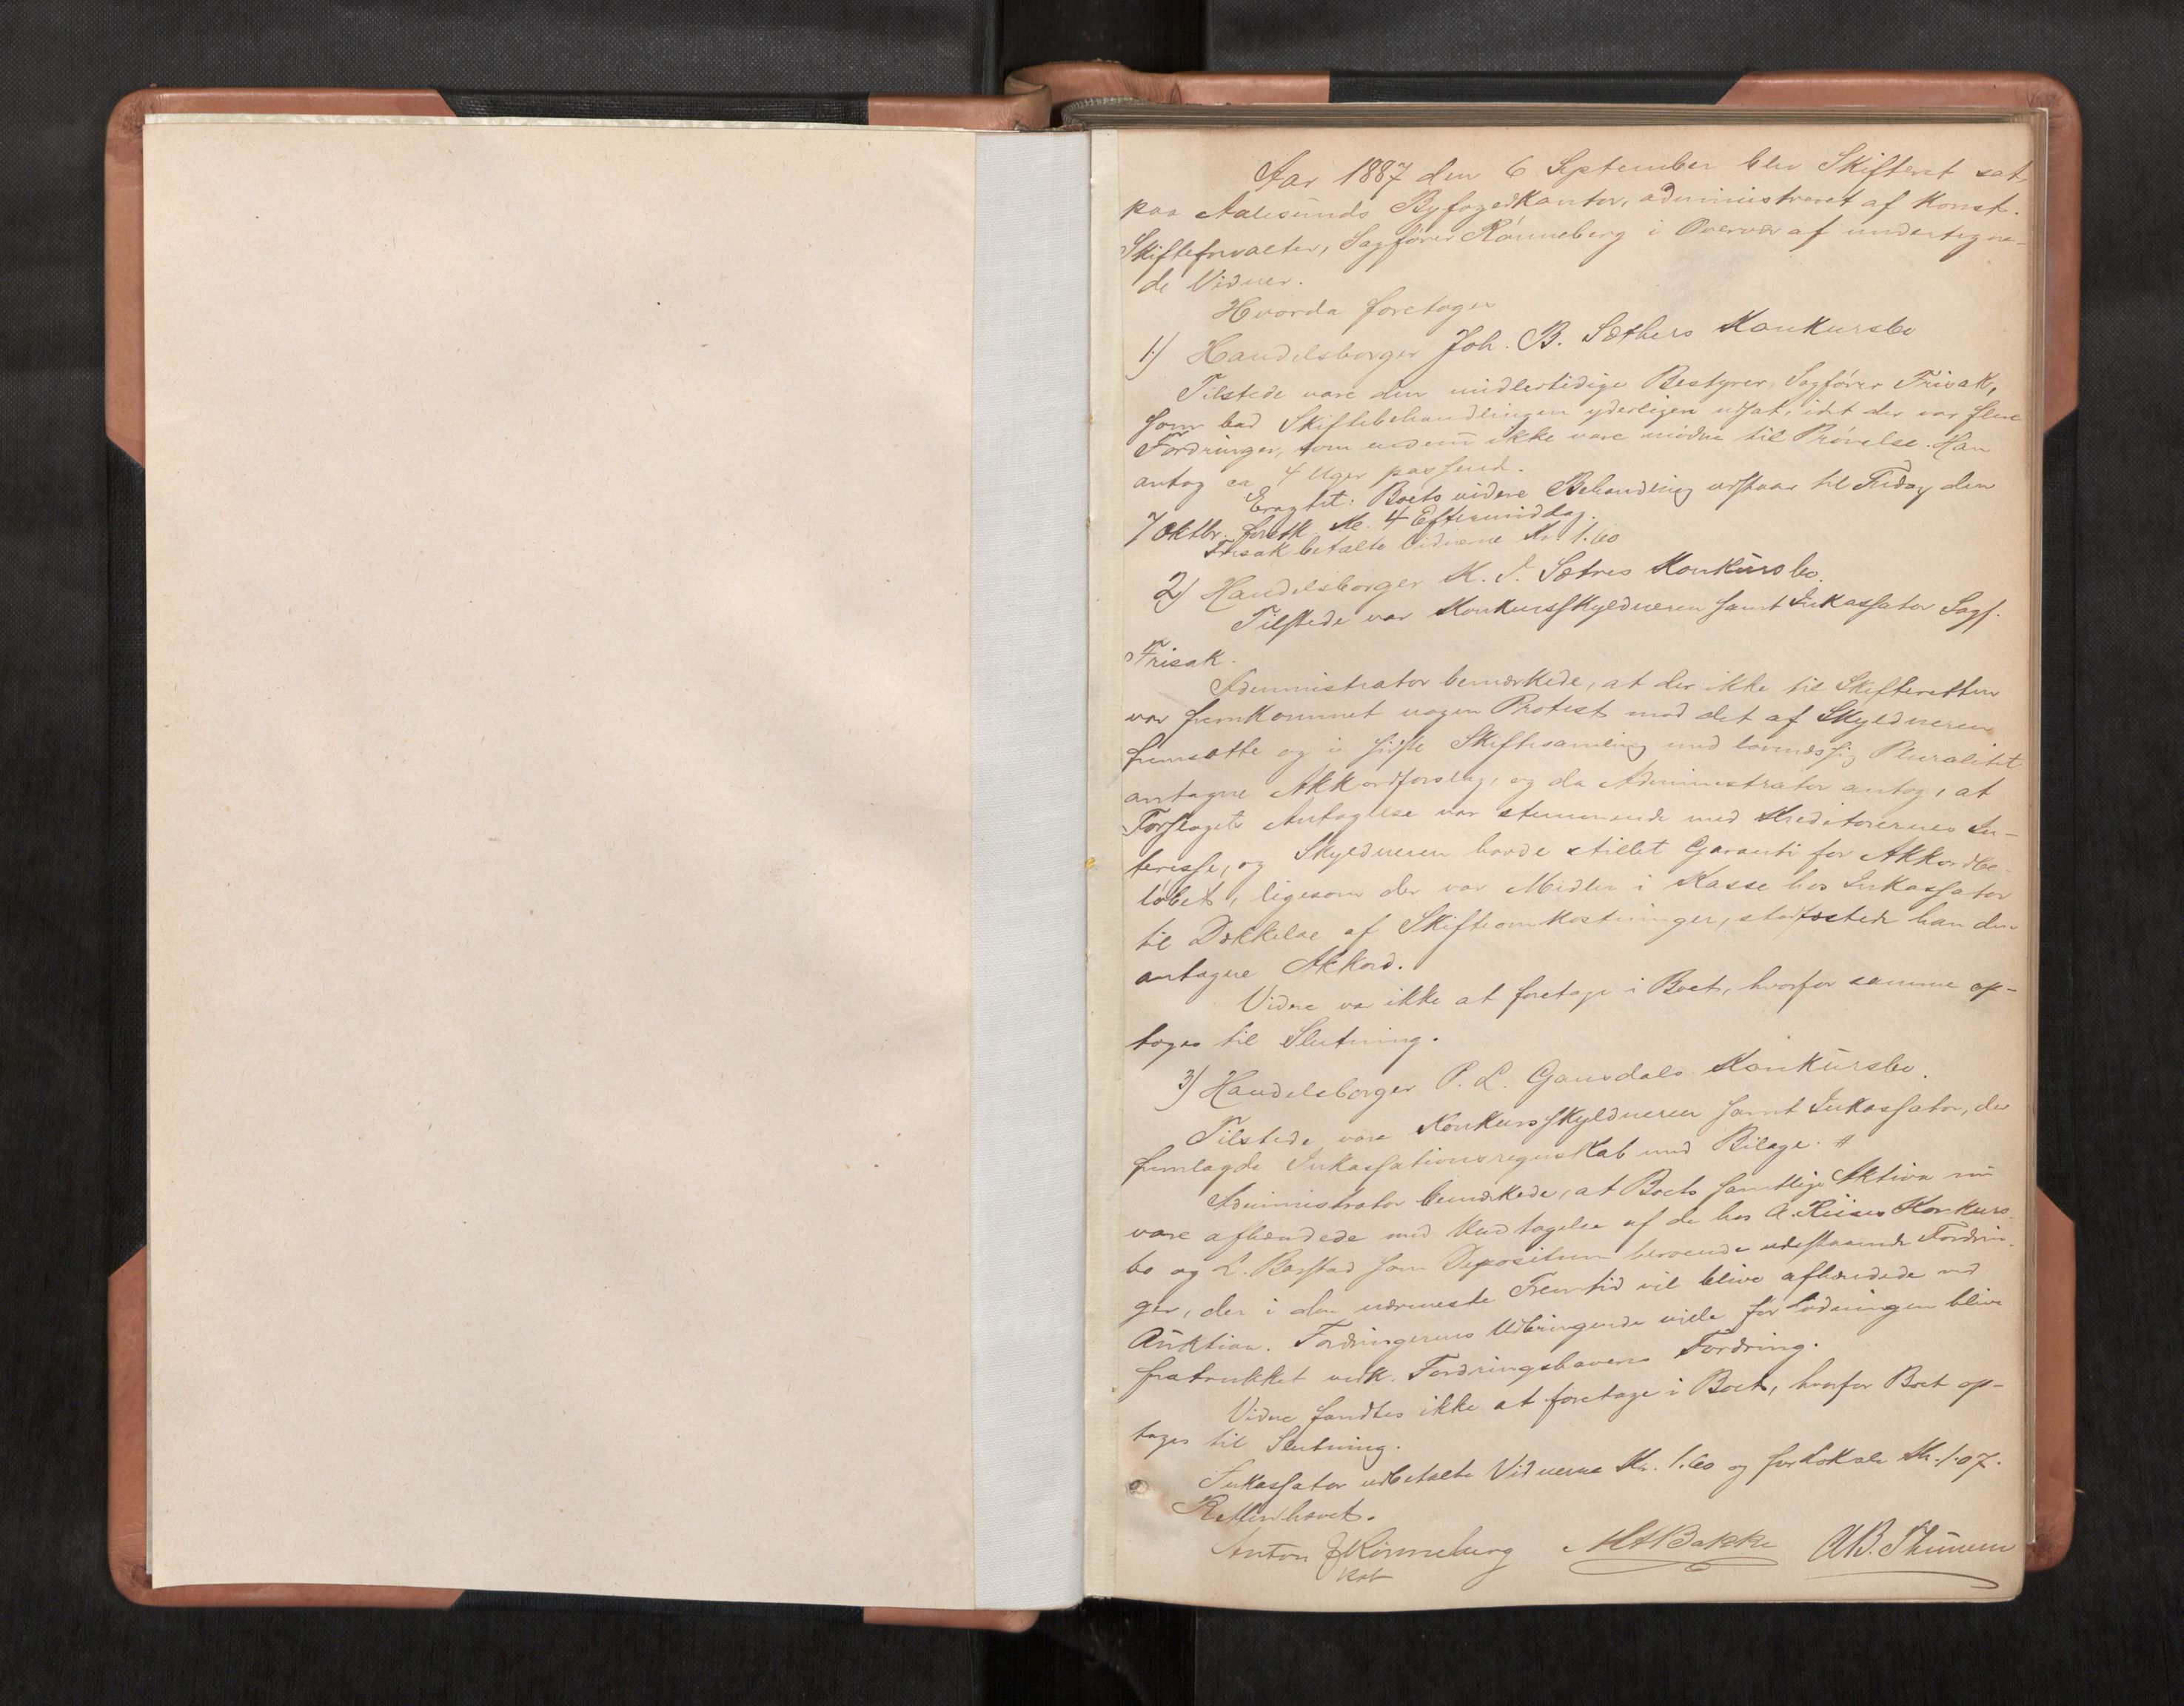 Aar 1887 den 6 September blev Skifteret sat
paa Aalesunds Byfogedkontor, administreret af Konst.
Skifteforvalter, Sagfører Rönneberg i Overvær af undertegne-
de Vidner.
Hvorda foretoges
1.) Handelsborger Joh. B. Sæthers Konkursbo
Tilstede vare den midlertidige Bestyrer, Sagfører Frisak,
som bad Skiftebehandlingen yderligere udsat, idet der var flere
Fordringer, som endnu ikke vare modne til Prövelse. Han
antog ca 4 Uger passend.
Eragtet: Boets videre Behandling udstaar til Fredag den
7 Oktbr. førstk. Kl. 4 Eftermiddag.
Frisak betalte Vidnerne Kr. 1.60
2) Handelsborger K. J. Sætres Konkursbo.
Tilstede var Konkursskyldneren samt Inkassator Sagf.
Frisak.
Administrator bemærkede, at der ikke til Skifteretten
var fremkommet nogen Protest mod det af Skyldneren
fremsatte og i sidste Skiftesamling med lovmæssig Pluralitet
antagne Akkordforslag, og da Administrator antog, at
Forslagets Antagelse var stemmende med Kreditorernes In-
teresse, og Skyldneren havde stillet Garanti for Akkordbe-
löbet, ligesom der var Midler i Kasse hos Inkassator
til Dækkelse af Skifteomkostninger, stadfæstede han den
antagne Akkord.
Videre var ikke at foretage i Boet, hvorfor samme op-
toges til Slutning.
3) Handelsborger P. L. Gausdals Konkursbo.
Tilstede vare Konkursskyldneren samt Inkassator, der
fremlagde Inkassationsregnskab med Bilage.
Administrator bemærkede, at Boets samtlige Aktiva nu
vare afhændede med Undtagelse af de hos A. Riises Konkurs-
bo og L. Rasstad som Depositum beroende udestaaende Fordrin-
ger, der i den nærmeste Fremtid vil blive afhændede ved
Auktion. Fordringernes Udbringende vilde før Lodningen blive
fratrukket vedk. Fordringshavers Fordring.
Videre fandtes ikke at foretage i Boet, hvorfor Boet op-
toges til Slutning.
Inkassator udbetalte Vidnerne Kr. 1.60 og for Lokale Kr. 1.07.
Retten hævet.
Anton J Rönneberg Bakke A B. Thunem
kst